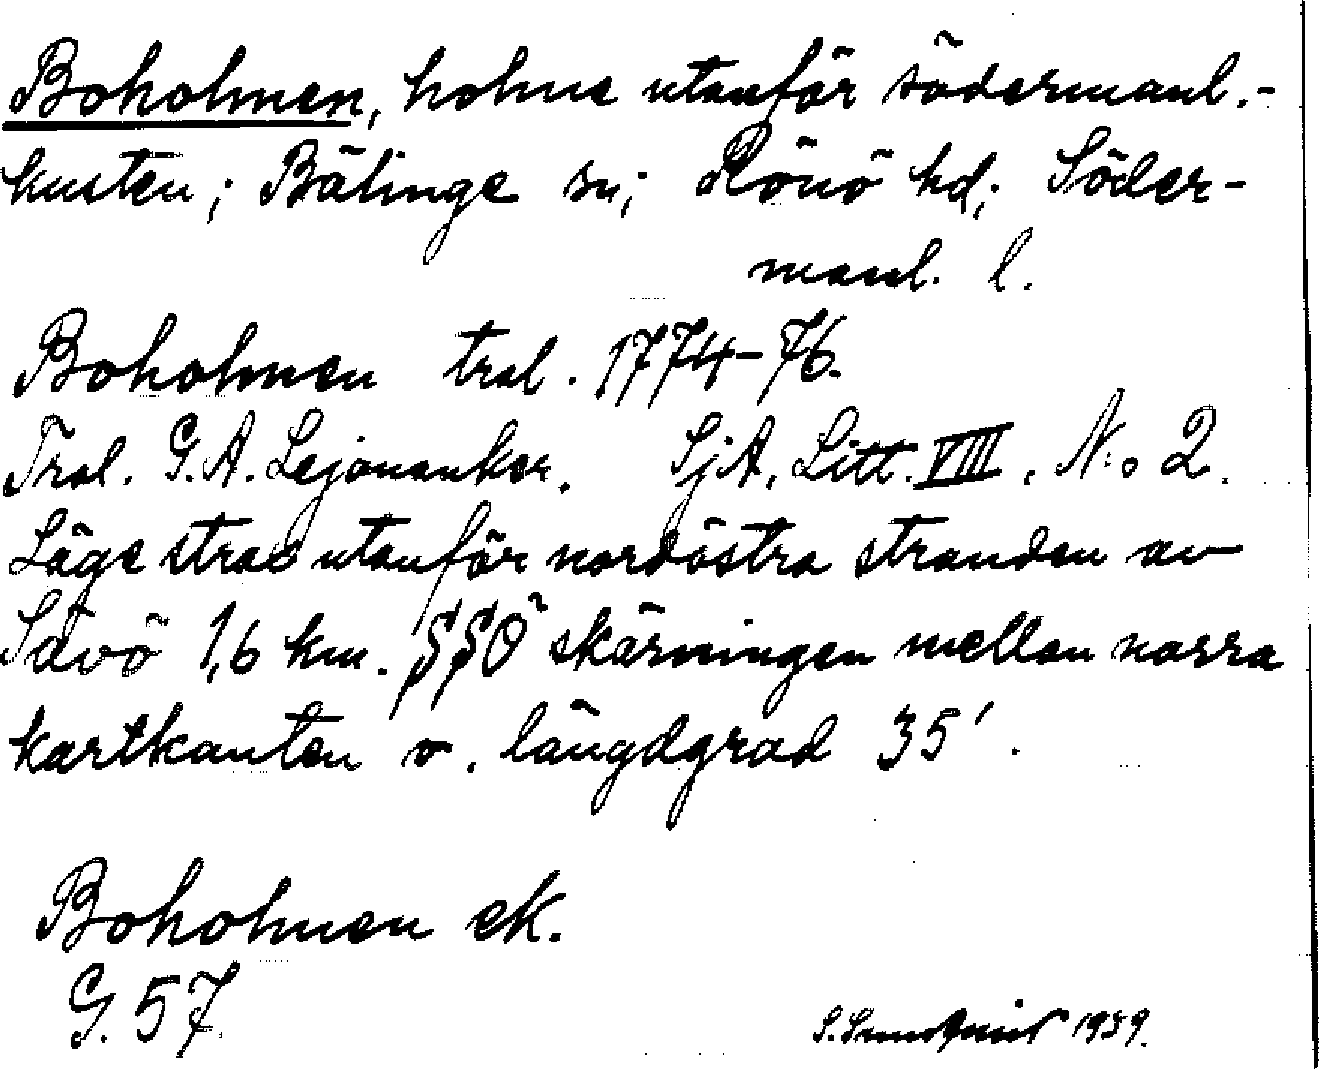 Boholmen, holme utanför södermanl.-
kusten; Bälinge sn; Rönö hd; Söder-
manl. l.
Boholmen trol. 1774-76.
Trol. G. A. Lejonanker. SjA. Litt. VIII. No 2.
Läge strax utanför nordöstra stranden av
Sävö 1,6 km. SSÖ skärningen mellan norra
kartkanten o. längdgrad 35'.
Boholmen ek.
G. 57
S. 1939.